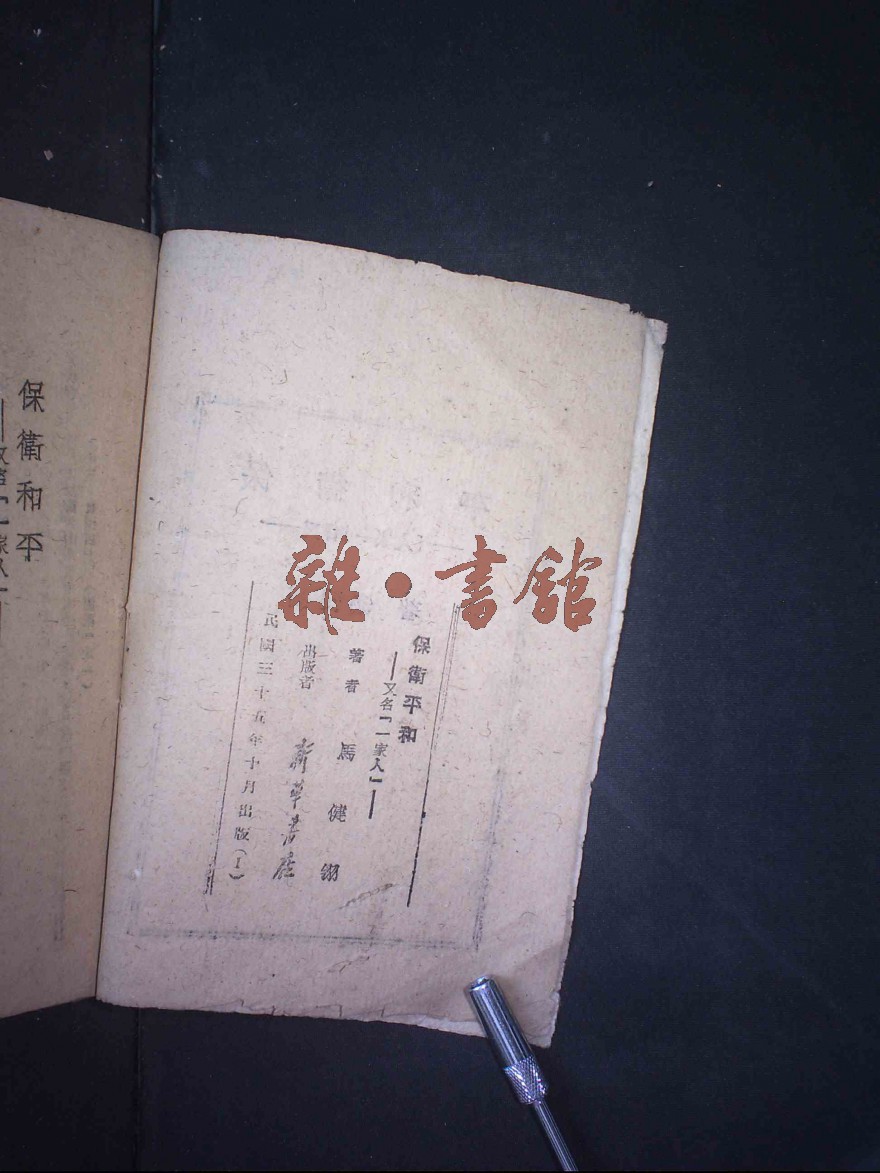 雜·書館
保衛平和
—又名「一家人」—
著者 馬健翎
出版者 新華書店
民國三十五年十月出版(1)
保衛和平
「一家人」